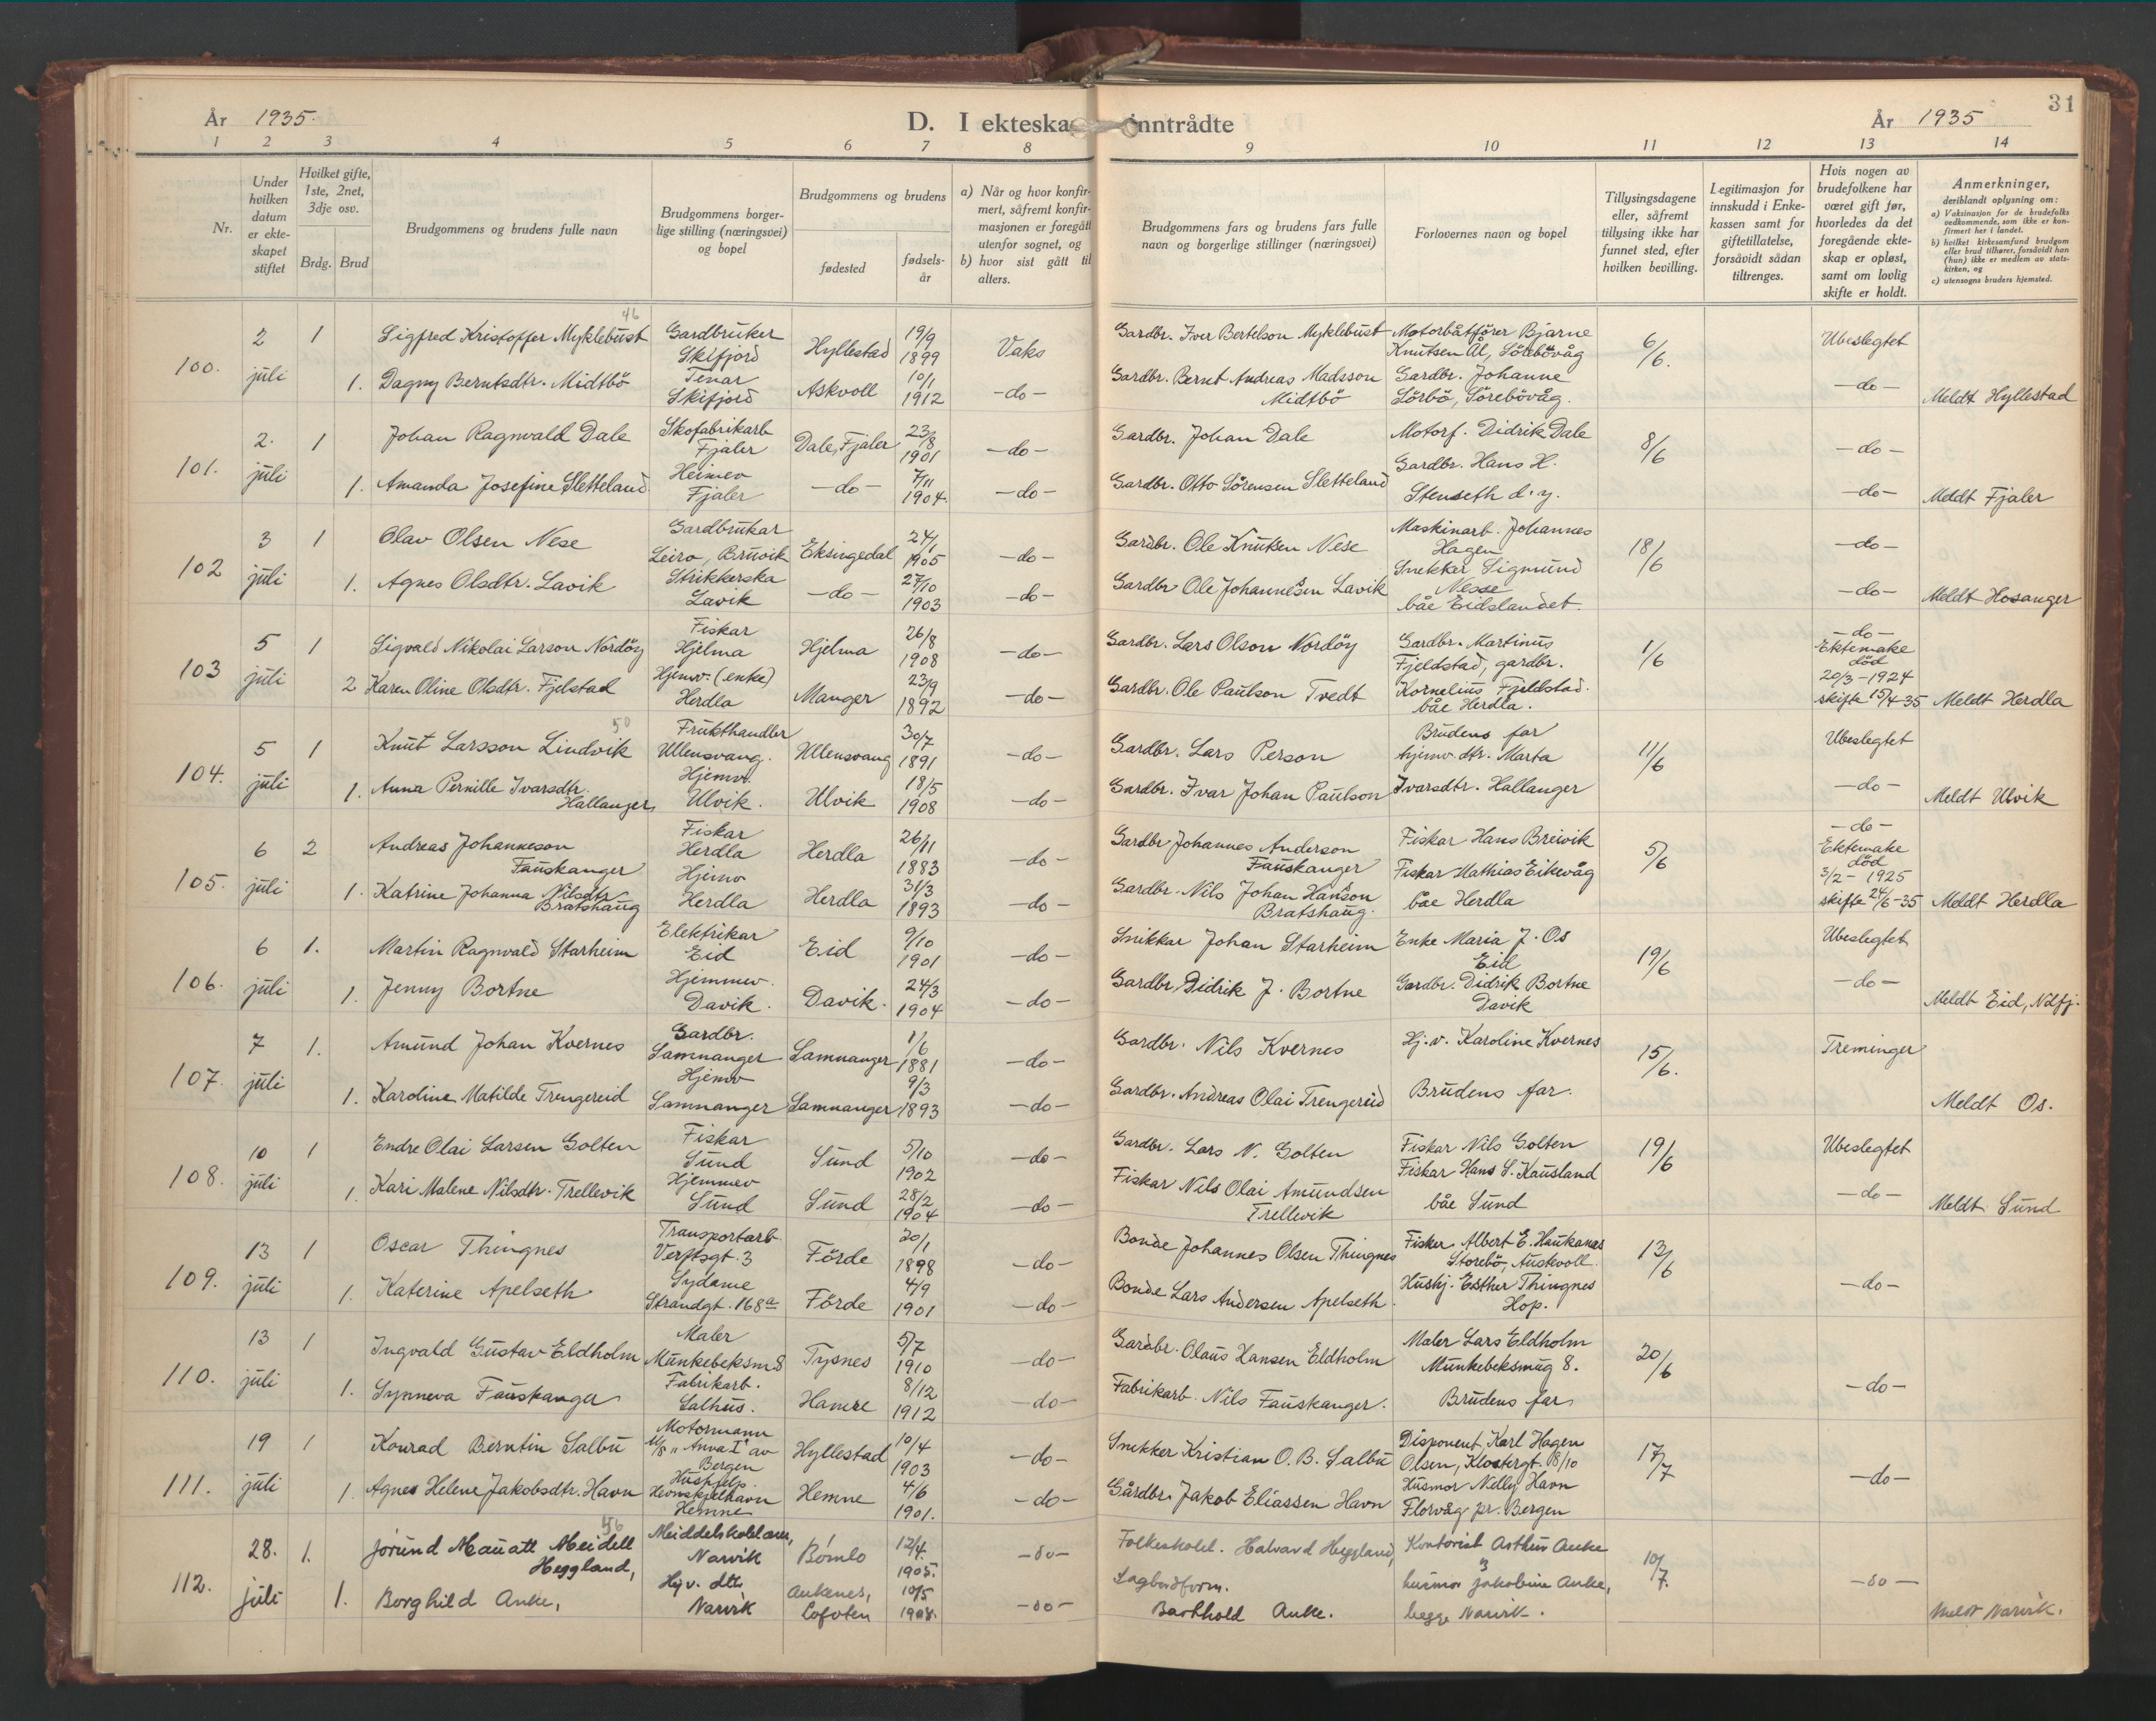 År 1935.
D. I ekteska
nntrådte
År 1935
31
1 2 3 4 5 6 7 8 9 10 11 12 13 14
Nr.
Under hvilken datum er ekteskapet stiftet
Hvilket gifte, 1ste, 2net, 3dje osv.
Brdg. Brud
Brudgommens og brudens fulle navn
Brudgommens borgerlige stilling (næringsvei) og bopel
Brudgommens og brudens
fødested
fødselsår
a) Når og hvor konfirmert, såfremt konfirmasjonen er foregått utenfor sognet, og
b) hvor sist gått til alters.
Brudgommens fars og brudens fars fulle navn og borgerlige stillinger (næringsvei)
Forlovernes navn og bopel
Tillysingsdagene eller, såfremt tillysing ikke har funnet sted, efter hvilken bevilling.
Legitimasjon for innskudd i Enkekassen samt for giftetillatelse, forsåvidt sådan tiltrenges.
Hvis nogen av brudefolkene har været gift før, hvorledes da det foregående ekteskap er opløst, samt om lovlig skifte er holdt.
Anmerkninger, deriblandt oplysning om:
a) Vaksinasjon for de brudefolks vedkommende, som ikke er konfirmert her i landet.
b) hvilket kirkesamfund brudgom eller brud tilhører, forsåvidt han (hun) ikke er medlem av statskirken, og
c) utensogns bruders hjemsted.
46
100. 2 juli 1 Sigfred Kristoffer Myklebust Gardbruker Skifjord Hyllestad 19/9 1899 Vaks Gardbr. Iver Bertelson Myklebust Motorbåtförer Bjarne Knutsen Ål, Sörebövåg 6/6. Ubeslegtet
1. Dagny Berntsdtr. Midtbö Tenar Skifjord Askvoll 10/1 1912 -do- Gardbr. Bernt Andreas Madsson Midtbö Gardbr. Johanne Sörbö, Sörebövåg. -do- Meldt Hyllestad
101. 2. juli 1 Johan Ragnvald Dale Skofabrikarb Fjaler Dale, Fjaler 23/8 1901 -do- Gardbr. Johan Dale Motorf. Didrik Dale 8/6 -do-
1. Amanda Josefine Sletteland Heimev Fjaler -do- 7/11 1904. -do- Gardbr. Otto Sörensen Sletteland Gardbr. Hans H. Stenseth d.y. -do- Meldt Fjaler
102 3 juli 1 Olav Olsen Nese Gardbrukar Leiro, Bruvik Eksingedal 24/1 1905 -do- Gardbr. Ole Knutsen Nese Maskinarb. Johannes Hagen 18/6 -do-
1. Agnes Olsdtr. Lavik Strikkerska Lavik -do- 27/10 1903 -do- Gardbr Ole Johannesen Lavik Snekkar Sigmund Nesse båe Eidslandet. -do- Meldt Hosanger
103 5 juli 1 Sigvald Nikolai Larson Nordöy Fiskar Hjelma Hjelma 26/8 1908 -do- Gardbr. Lars Olson Nordöy Gardbr. Martinus Fjeldstad, gardbr. 1/6 -do-
2 Karen Oline Olsdtr. Fjelstad Hjemv. (enke) Herdla Manger 23/9 1892 -do- Gardbr. Ole Paulson Tvedt Kornelius Fjeldstad. båe Herdla. Ektemake död 20/3-1924 skifte 15/4-35 Meldt Herdla
50
104. 5 juli 1 Knut Larsson Lindvik Frukthandler Ullensvang. Ullensvang 30/7 1891 -do- Gardbr. Lars Person Brudens far 11/6 Ubeslegtet
1. Anna Pernille Ivarsdtr. Hallanger Hjemv. Ulvik. Ulvik 18/5 1908 -do- Gardbr. Ivar Johan Paulson hjemv. dtr. Marta Ivarsdtr. Hallanger -do- Meldt Ulvik
105. 6 juli 2 Andreas Johanneson Fauskanger Fiskar Herdla Herdla 26/11 1883 -do- Gardbr Johannes Anderson Fauskanger Fiskar Hans Breivik 5/6 -do- Ektemake död 3/2-1925 skifte 24/6-35
1. Katrine Johanna Nilsdtr Bratshaug Hjemv Herdla Herdla 31/3 1893 -do- Gardbr. Nils Johan Hanson Bratshaug. Fiskar Mathias Eikevåg båe Herdla Meldt Herdla
106. 6 juli 1. Martin Ragnvald Starheim Elektrikar Eid Eid 9/10 1901 -do- Snikkar Johan Starheim Enke Maria J. Os Eid 19/6 Ubeslegtet
1. Jenny Bortne Hjemmev. Davik. Davik. 24/3 1904 -do- Gardbr. Didrik J. Bortne Gardbr. Didrik Bortne Davik -do- Meldt Eid, Ndfj.
107. 7 juli 1. Amund Johan Kvernes Gardbr. Samnanger Samnanger 1/6 1881 -do- Gardbr. Nils Kvernes Hj.v. Karoline Kvernes 15/6. Treminger
1. Karoline Matilde Trengereid Hjemv Samnanger Samnanger 9/3 1893 -do- Gardbr. Andreas Olai Trengereid Brudens far. Meldt Os.
108. 10 juli 1 Endre Olai Larsen Golten Fiskar Sund Sund 5/10 1902 -do- Gardbr. Lars N. Golten Fiskar Nils Golten 19/6 Ubeslegtet
1. Kari Malene Nilsdtr. Trellevik Hjemmev Sund Sund 28/2 1904 -do- Fiskar Nils Olai Amundsen Trellevik Fiskar Hans S. Kausland båe Sund -do- Meldt Sund
109. 13 juli 1 Oscar Thingnes Transportarb. Verftsgt. 3 Förde 20/1 1898 -do- Bonde Johannes Olsen Thingnes Fisker Albert E. Haukanes Storebö, Austevoll. 13/6
1. Katerine Apelseth Sydame Strandgt. 168a Förde 4/9 1901 -do- Bonde Lars Andersen Apelseth. Hushj. Esther Thingnes Hop. -do-
110. 13 juli 1 Ingvald Gustav Eldholm Maler Munkebeksm 8 Tysnes 5/7 1910 -do- Gardbr. Olaus Hansen Eldholm Maler Lars Eldholm Munkebeksmug 8. 20/6
1. Synneva Fauskanger Fabrikarb. Salhus. Hamre 8/12 1912 -do- Fabrikarb. Nils Fauskanger. Brudens far -do-
111. 19 juli 1 Konrad Berntin Salbu Motormann M/S "Anna I" av Bergen Hyllestad 10/4 1903 -do- Snekker Kristian O. B. Salbu Disponent Karl Hagen Olsen, Klostergt. 8/10 17/7
1. Agnes Helene Jakobsdtr. Havn Hushjelp. Hemnskjelhavn Hemne Hemne 4/6 1901. -do- Gårdbr. Jakob Eliassen Havn Husmor Nelly Havn Florvåg pr. Bergen -do-
56
112. 28. juli 1. Jørund Meidell Heggland, Narvik Bømlo 12/4. 1905. -do- Folkeskolel. Halvard Heggland, Kontorist Arthur Anke 10/7.
1. Borghild Anke, Hjv. dtr. Narvik Ankenes, Lofoten 10/5 1908. -do- Sagbordform. Barthold Anke. husmor Jakobine Anke, begge Narvik. -do- Meldt Narvik.